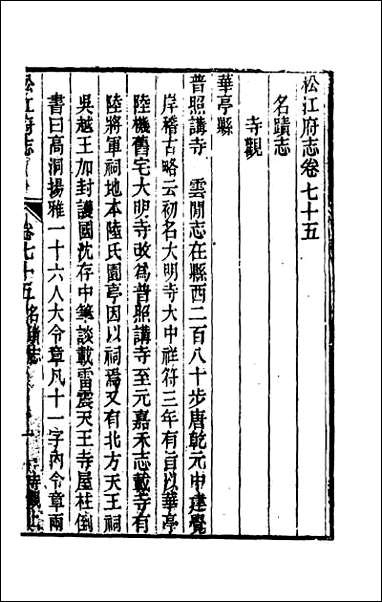 松江府志卷七十五
名蹟志
寺觀
華亭縣
普照講寺　雲間志在縣西二百八十步唐乾元中建覺
岸稽古略云初名大明寺大中祥符三年有旨以華亭
陸機舊宅大明寺改為普照講寺至元嘉禾志載寺有
陸將軍祠地本陸氏園亭因以祠焉又有北方天王祠
吳越王加封護國沈存中筆談載雷震天王寺屋柱倒
書曰高洞揚雅一十六人大令章凡十一字內令章兩
松江府志
卷七十五名蹟志
寺觀